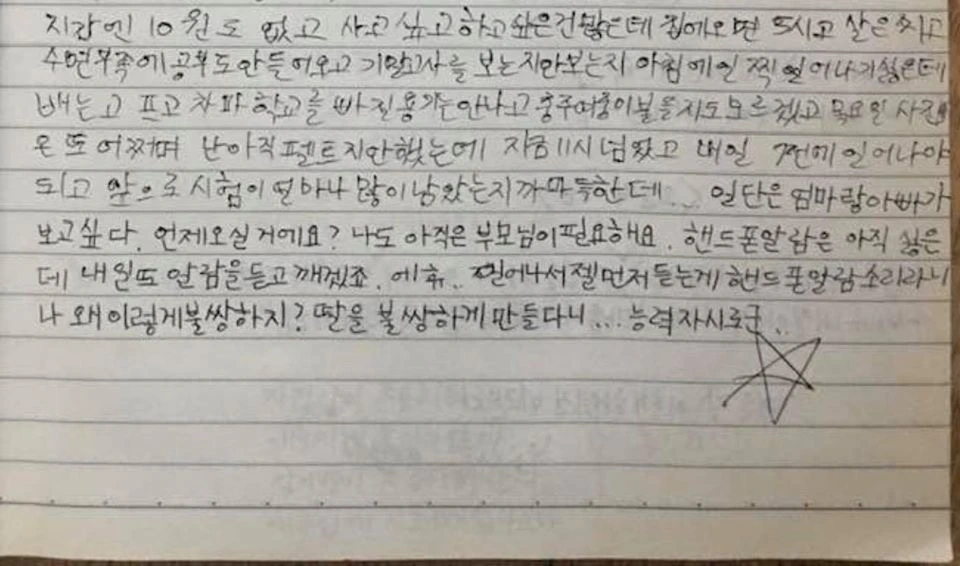 지갑엔 10원도 없고 사고 싶고 하고 싶은건 많은데 집에오면 또시고 살은 찌고
수면부족에 공부도 안들어오고 기말고사를 보는지안보는지 아침에 일찍 일어나기싫은데
배는 고프고 차마 학교를 빠질용기는안나고 중주여중이 붙을지도모르겠고 목요일 사진
은 또 어쩌며 난아직 펠트지안했는데 지금 11시 넘었고 내일 7전에 일어나야
되고 앞으로 시험이 얼마나 많이 남았는지까마득한데... 일단은 엄마랑아빠가
보고싶다. 언제오실거에요? 나도 아직은 부모님이필요해요. 핸드폰알람은 아직 싫은
데 내일또 알람을듣고 깨겠죠. 에휴.. 일어나서젤먼저듣는게 핸드폰알람소리라니
나 왜이렇게불쌍하지? 딸을 불쌍하게 만들다니... 능력자시로군..